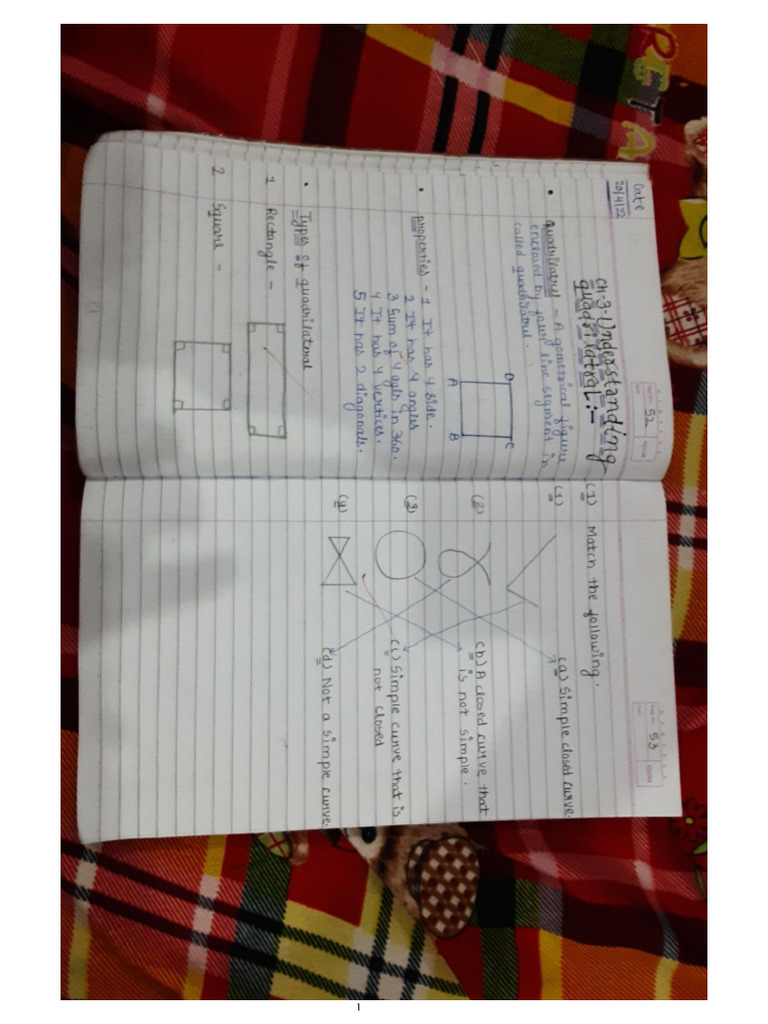 Date
20/4/22
52
Ch-3-Understanding
quadrilatral:-
• quadrilatrul - A gometrical figure
enclosed by four line segment in
called quadratirul.
D C
A B
• properties - 1 It has 4 side.
2 It has 4 angles
3 Sum of 4 egls in 360.
4 It has 4 vertices.
5 It has 2 diagonals.
• Types of quadrilateral
1 Rectangle -
2 Square -
53
(1) Match the following.
(1) (a) Simple closed curve.
(2) (b) A closed curve that
is not simple.
(3) (c) Simple curve that is
not closed
(4) (d) Not a simple curve.
RETA
1